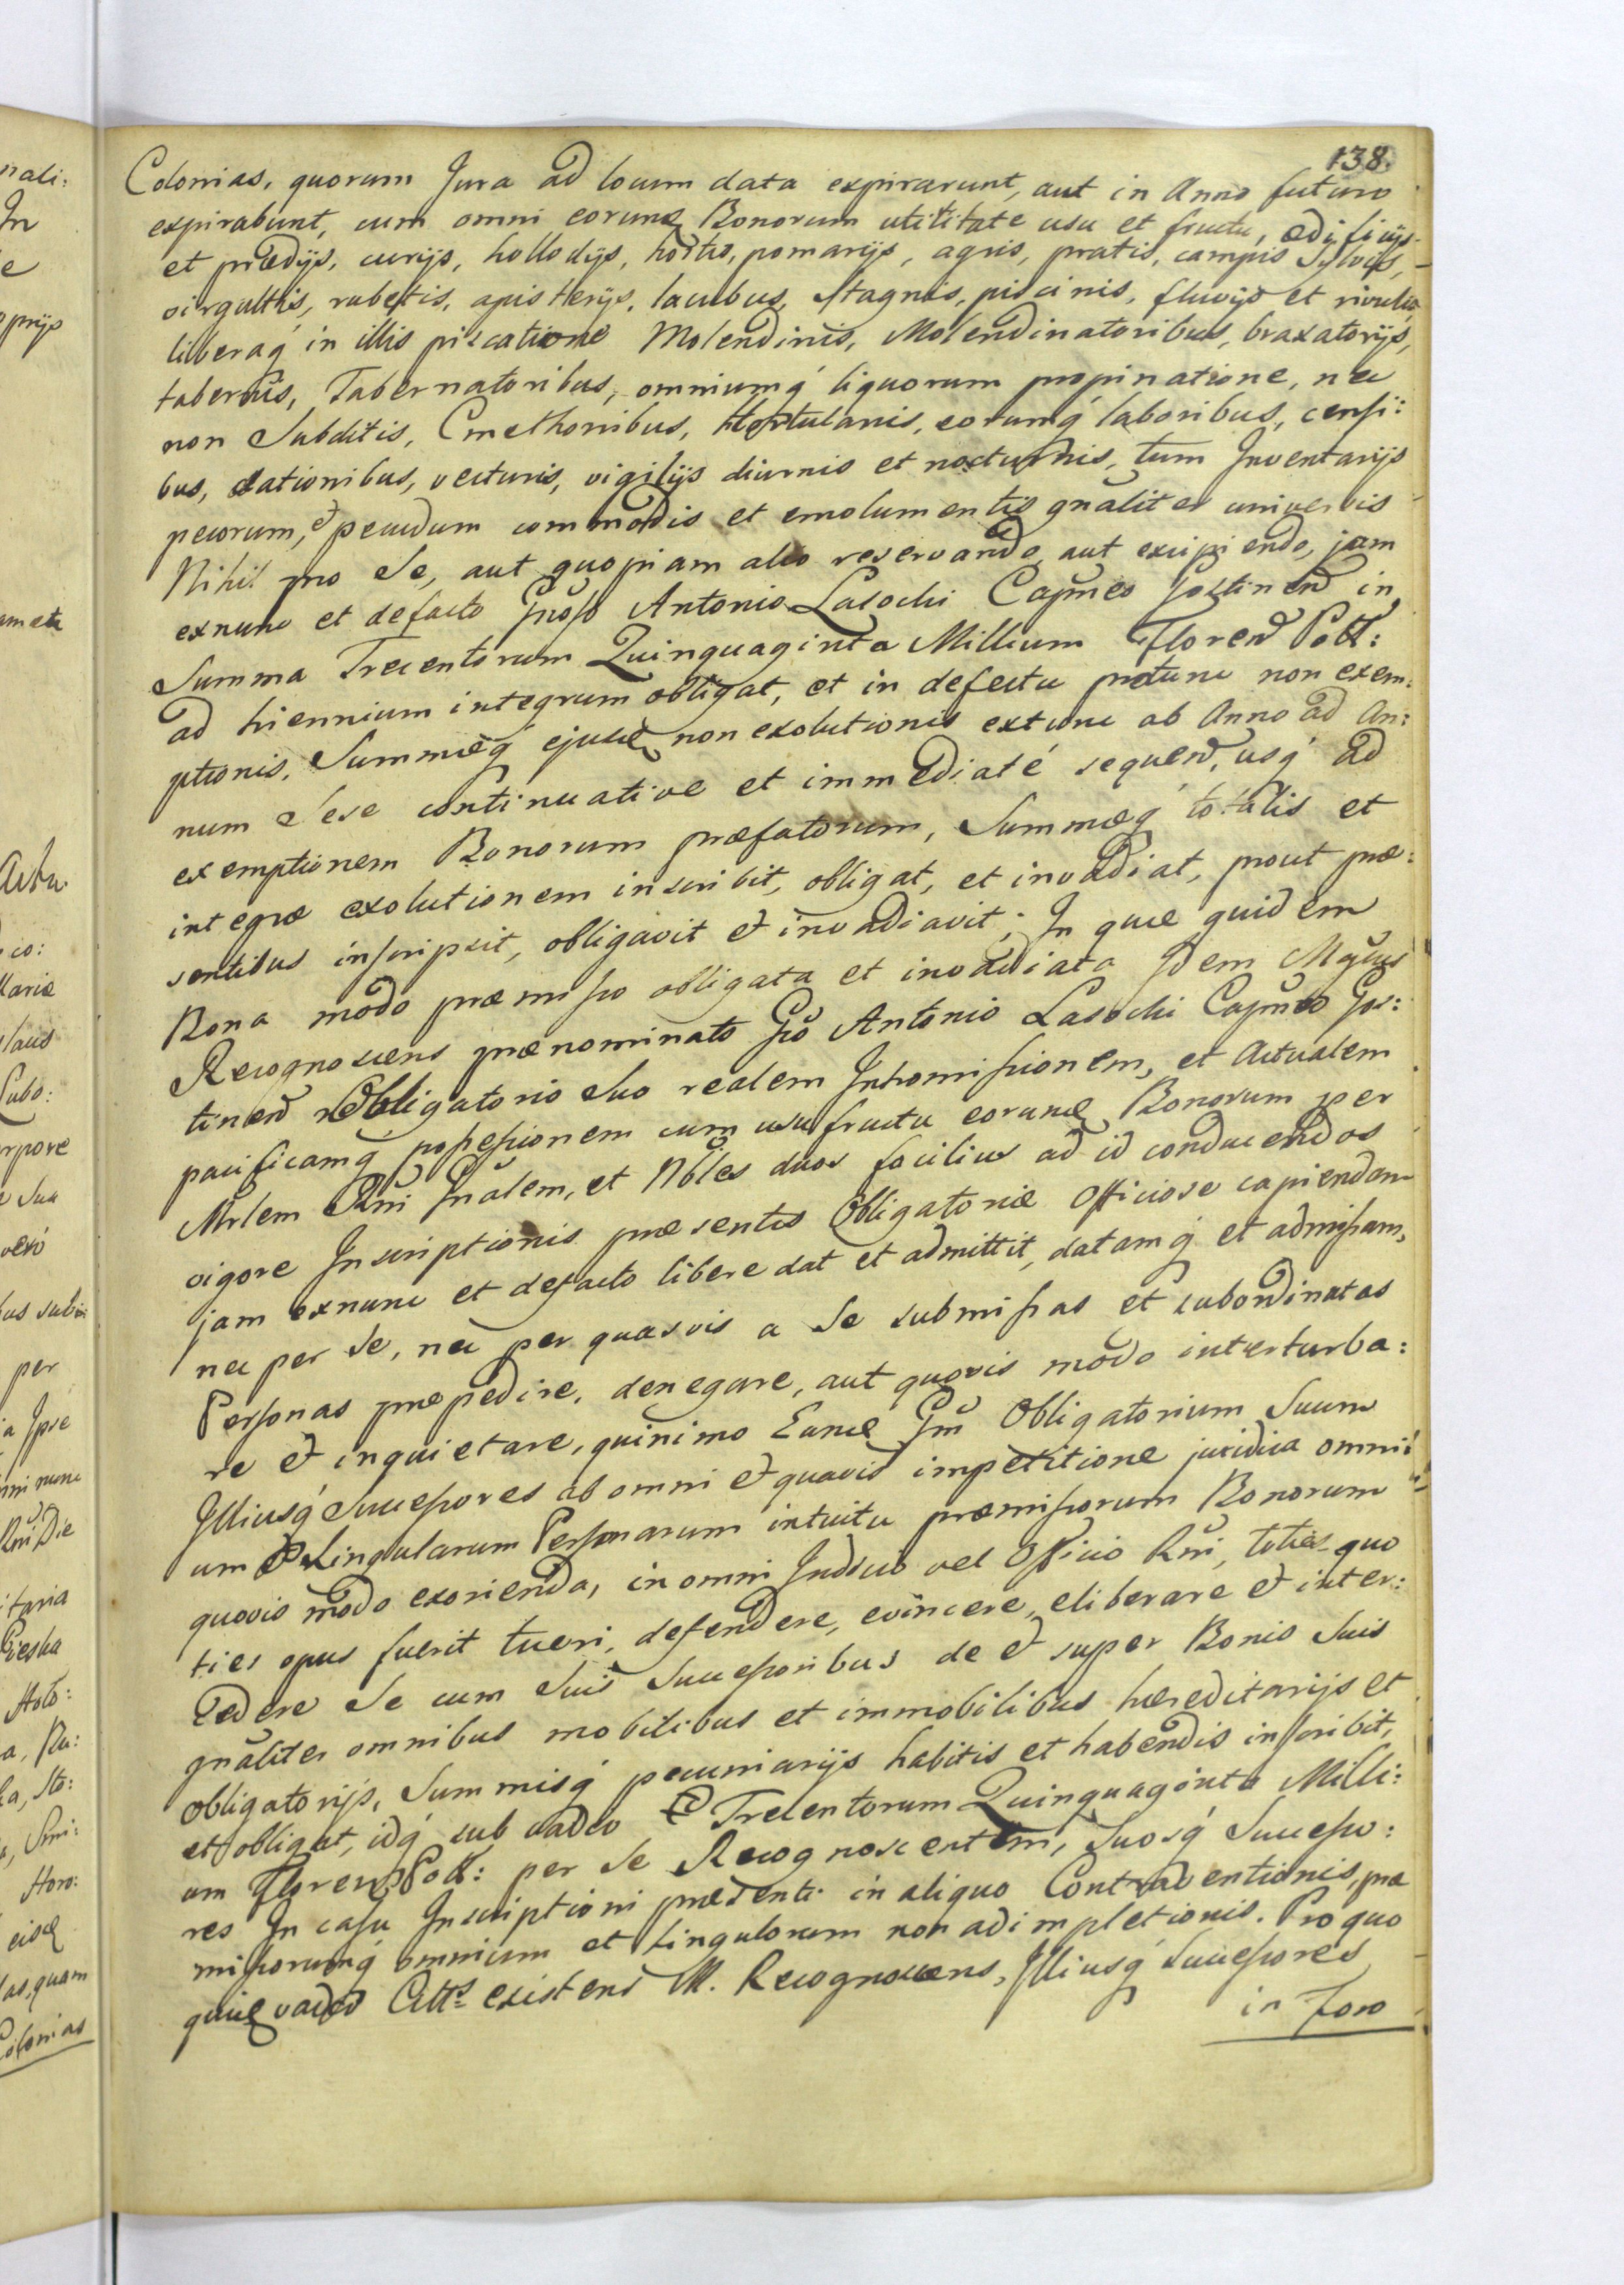 138.
Colonias, quorum Jura ad locum data expirarunt, aut in Anno futuro
expirabunt, cum omni eorund Bonorum utilitate usu et fructu, ædificijs
et prædijs, curijs, hollodijs, hortis, pomarijs, agris, pratis, campis Sylvijs,
virgultis, rubetis, apisterijs, lacubus, stagnis, piscinis, fluvijs et rivulis,
liberaq́ in illis piscatione Molendinis, Molendinatoribus, braxatorijs,
tabernis, Tabernatoribus, omniumq́ liquorum propinatione, nec
non Subditis, Cmethonibus, Hortulanis, eorumq́ laboribus, censi:
bus, dationibus, vecturis, vigilijs diurnis et nocturnis, tum Inventarijs
pecorum, et pecudum commodis et emolumentis gnãliter universis
Nihil pro se, aut quopiam alio reservando, aut excipiendo, jam
exnunc et defacto Gnõso Antonio Lasocki Capneo Gostinen in
Summa Trecentorum Quinquaginta Millium Floren Poll:
ad triennium integrum obligat, et in defectu protunc non exem:
ptionis, Summæq́ ejusd non exolutionis extunc ab Anno ad An:
num Sese continuative et immediaté sequen, usq́ ad
exemptionem Bonorum præfatorum, Summæq́ totalis et
integræ exolutionem inscribit, obligat, et invadiat, prout præ:
sentibus inscripsit, obligavit et invadiavit; In quæ quidem
Bona modo præmisso obligata et invadiata Idem Mgfcus
Recognoscens prænominato Gso Antonio Lasocki Capneo Gos:
tinen Obligatorio Suo realem Intromissionem, et Actualem
pacificamq́ possessionem cum usufructu eorund Bonorum per
Mrlem Rni Gnalem, et Nobles duos facilius ad id conducendos
vigore Inscriptionis præsentis Obligatoriæ Officiose capiendam
jam exnunc et defacto libere dat et admittit, datamq́ et admissam,
nec per se, nec per quasvis a se submissas et subordinatas
Personas præpedire, denegare, aut quovis modo interturba:
re et inquietare, quinimo Eund Gsm Obligatorium Suum
Illiusq́ Successores ab omni et quavis impetitione juridica omni:
um et Singularum Personarum intuitu præmissorum Bonorum
quovis modo exorienda, in omni Judicio vel Officio Rni, toties quo
ties opus fuerit tueri, defendere, evincere, eliberare et inter:
cedere Se cum Suis Successoribus de et super Bonis Suis
gnãliter omnibus mobilibus et immobilibus hæreditarijs et
obligatorijs, Summisq́ pecuniarijs habitis et habendis inscribit,
et obligat, idq́ sub vadio Trecentorum Quinquaginta Milli:
um Floren Poll: per Se Recognoscentem, Suosq́ Successo:
res In casu Inscriptioni præsenti in aliquo Contraventionis, præ
missorumq́ omnium et singulorum non adimpletionis. Pro quo
quid vadio Citts existens M. Recognoscens, Illiusq́ Successores
in Foro